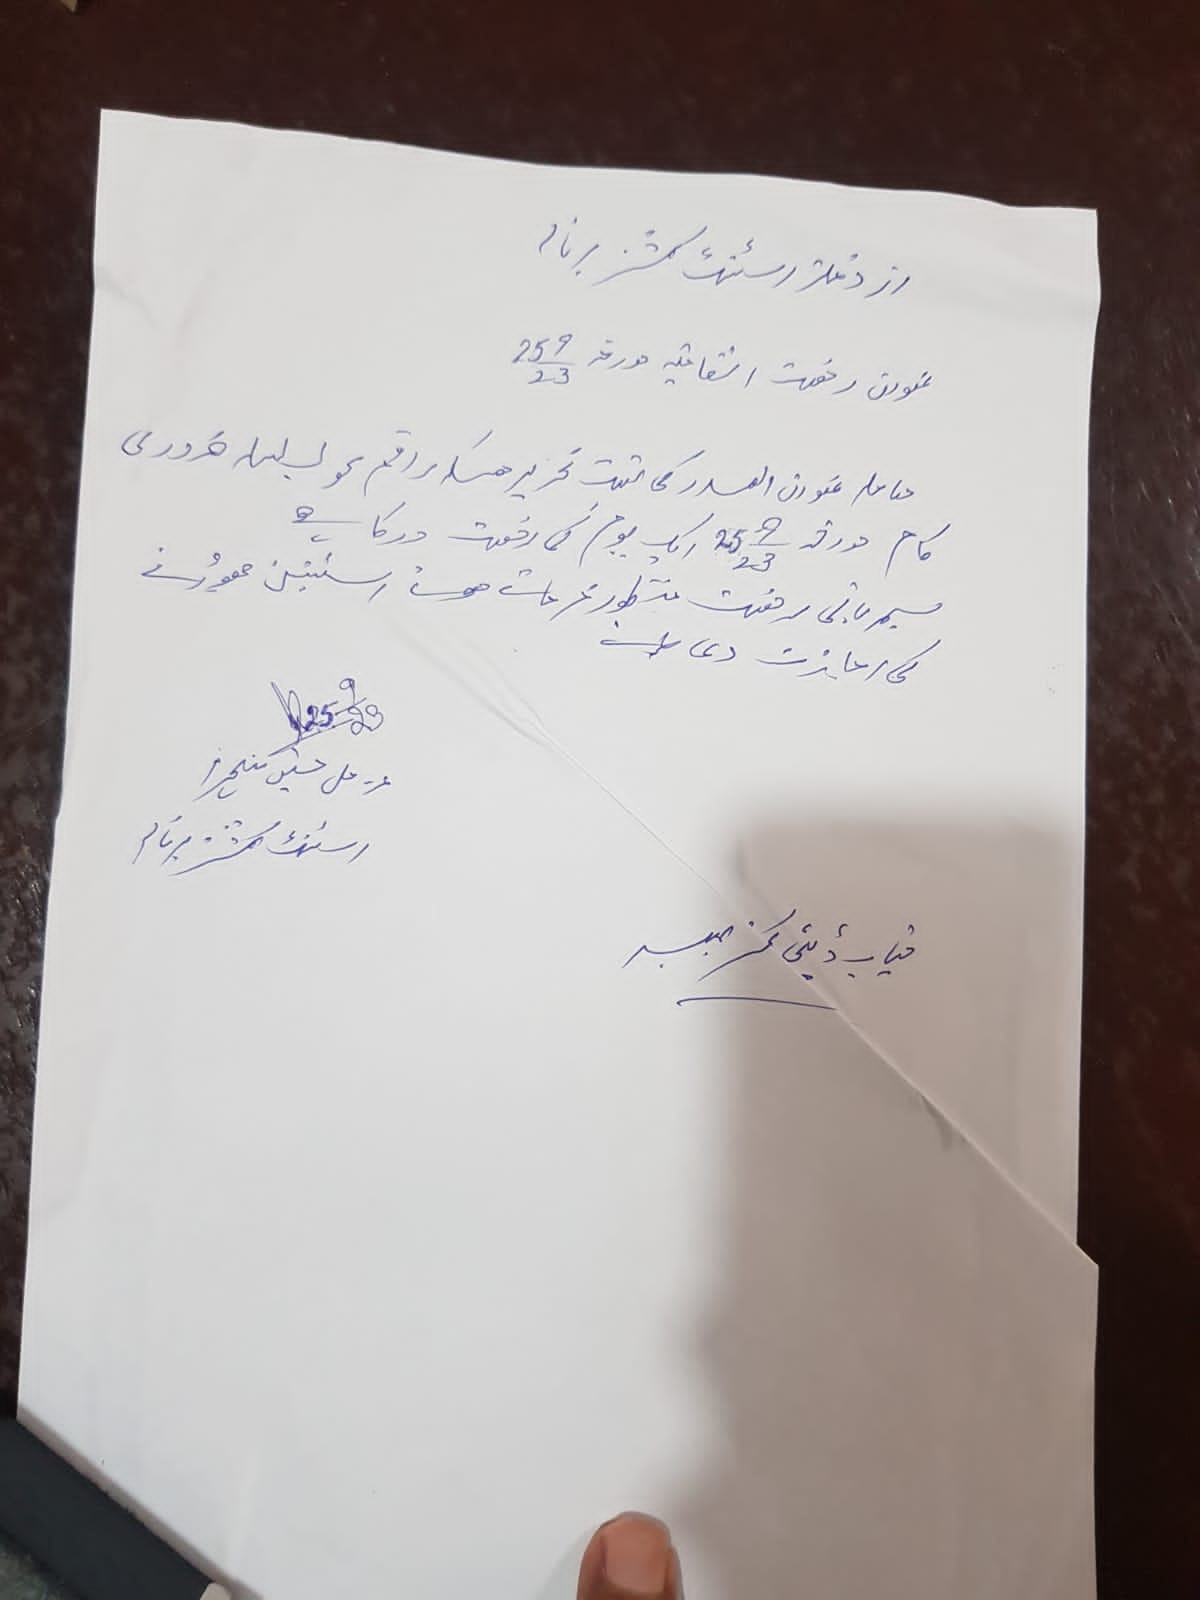 از دفتر اسسٹنٹ کمشنر برنالہ
عنوان رخصت اتفاقیہ مورخہ 25 9/23
معاملہ عنوان الصدر کی نسبت تحریر ھیکہ راقم کو بسلسلہ ضروری
کام مورخہ 25 9/23 ایک یوم کی رخصت درکار ہے
مہربانی رخصت منظور فرماتے ھوئے اسٹیشن چھوڑنے
کی اجازت دی جائے
25 9/23
حسین
اسسٹنٹ کمشنر برنالہ
جناب ڈپٹی کمشنر بھمبر